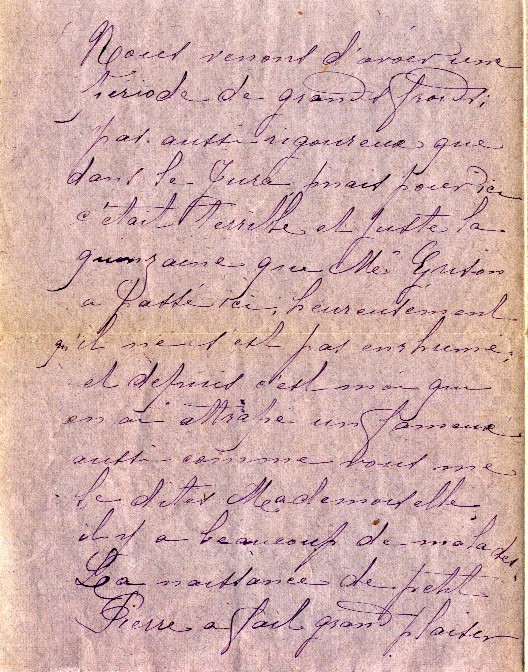 Nous venons d'avoir une
période de grands froids,
pas aussi rigoureux que
dans le Jura, mais pour ici
c'était terrible et juste la
quinzaine que Mr Grison
a passé ici, heureusement
qu'il ne s'est pas enrhumé,
et depuis c'est moi qui
en ai attrapé un fameux
aussi comme vous me
le dites Mademoiselle
il y a beaucoup de malades.
La naissance de petit
Pierre a fait grand plaisir